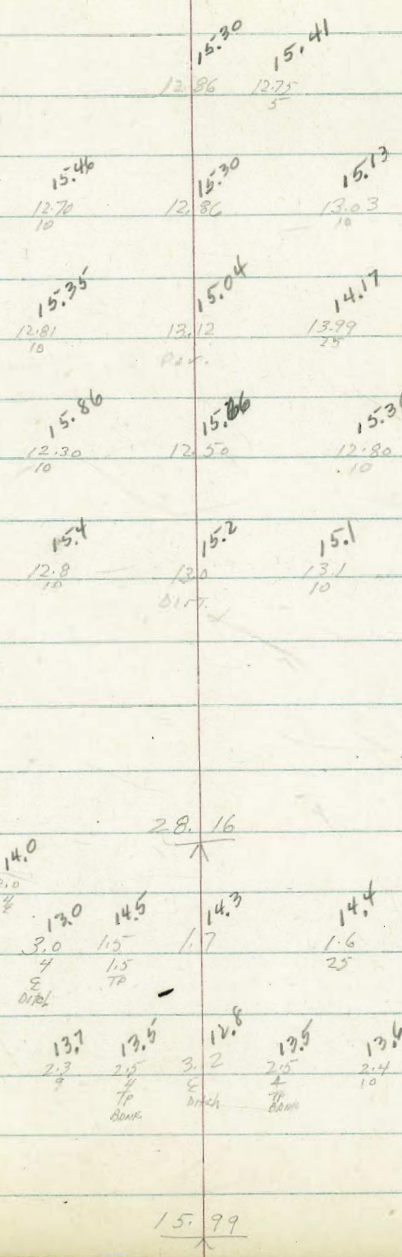 15.30 15.41
12.86 12.75
5
15.46 15.30 15.13
12.70 12.86 13.03
10 10
15.35 15.04 14.17
12.81 13.12 13.99
10 25
15.86 12.30 12.50 12.80
10 10
15.4 15.2 15.1
12.8 13.0 13.1
10 DIRT. 10
28.16
14.0
13.0 14.5 14.3 14.4
3.0 1.5 1.7 1.6
4 1.5 25
TP
Ditch
13.7 13.5 12.8 13.5
2.3 2.5 3.2 2.5 2.4
9 4 4 10
TP Ditch TP
BANK BANK
15.99